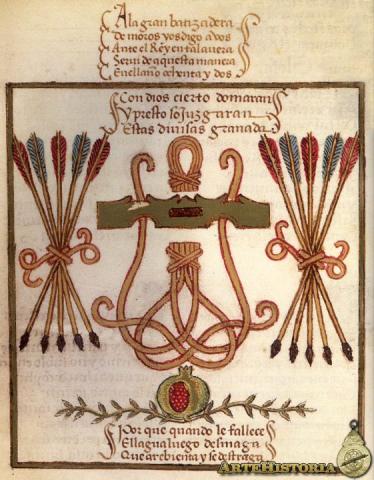 A la gran batizadera
de moros yos digo a vos
Ante el Rey en talauera
Serui de aquesta manera
En el año ochenta y dos
Con dios cierto domaran
Y presto sojuzgaran
Estas diuisas granada
Por que quando le fallece
El lagua luego desmaga
Que rebienta y se destraga
ARTEHISTORIA